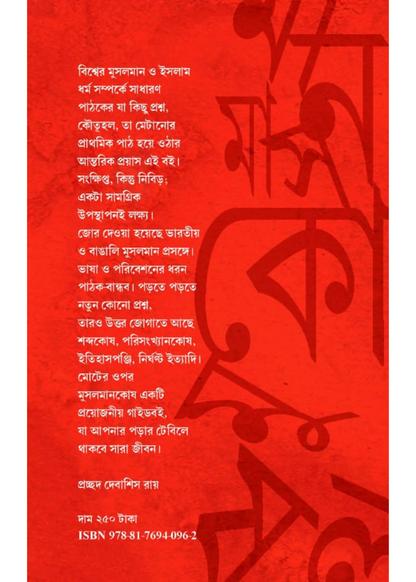 বিশ্বের মুসলমান ও ইসলাম
ধর্ম সম্পর্কে সাধারণ
পাঠকের যা কিছু প্রশ্ন,
কৌতূহল, তা মেটানোর
প্রাথমিক পাঠ হয়ে ওঠার
আন্তরিক প্রয়াস এই বই।
সংক্ষিপ্ত, কিন্তু নিবিড়;
একটা সামগ্রিক
উপস্থাপনই লক্ষ্য।
জোর দেওয়া হয়েছে ভারতীয়
ও বাঙালি মুসলমান প্রসঙ্গে।
ভাষা ও পরিবেশনের ধরন
পাঠক-বান্ধব। পড়তে পড়তে
নতুন কোনো প্রশ্ন,
তারও উত্তর জোগাতে আছে
শব্দকোষ, পরিসংখ্যানকোষ,
ইতিহাসপঞ্জি, নির্ঘণ্ট ইত্যাদি।
মোটের ওপর
মুসলমানকোষ একটি
প্রয়োজনীয় গাইডবই,
যা আপনার পড়ার টেবিলে
থাকবে সারা জীবন।
প্রচ্ছদ দেবাশিস রায়
দাম ২৫০ টাকা
ISBN 978-81-7694-096-2